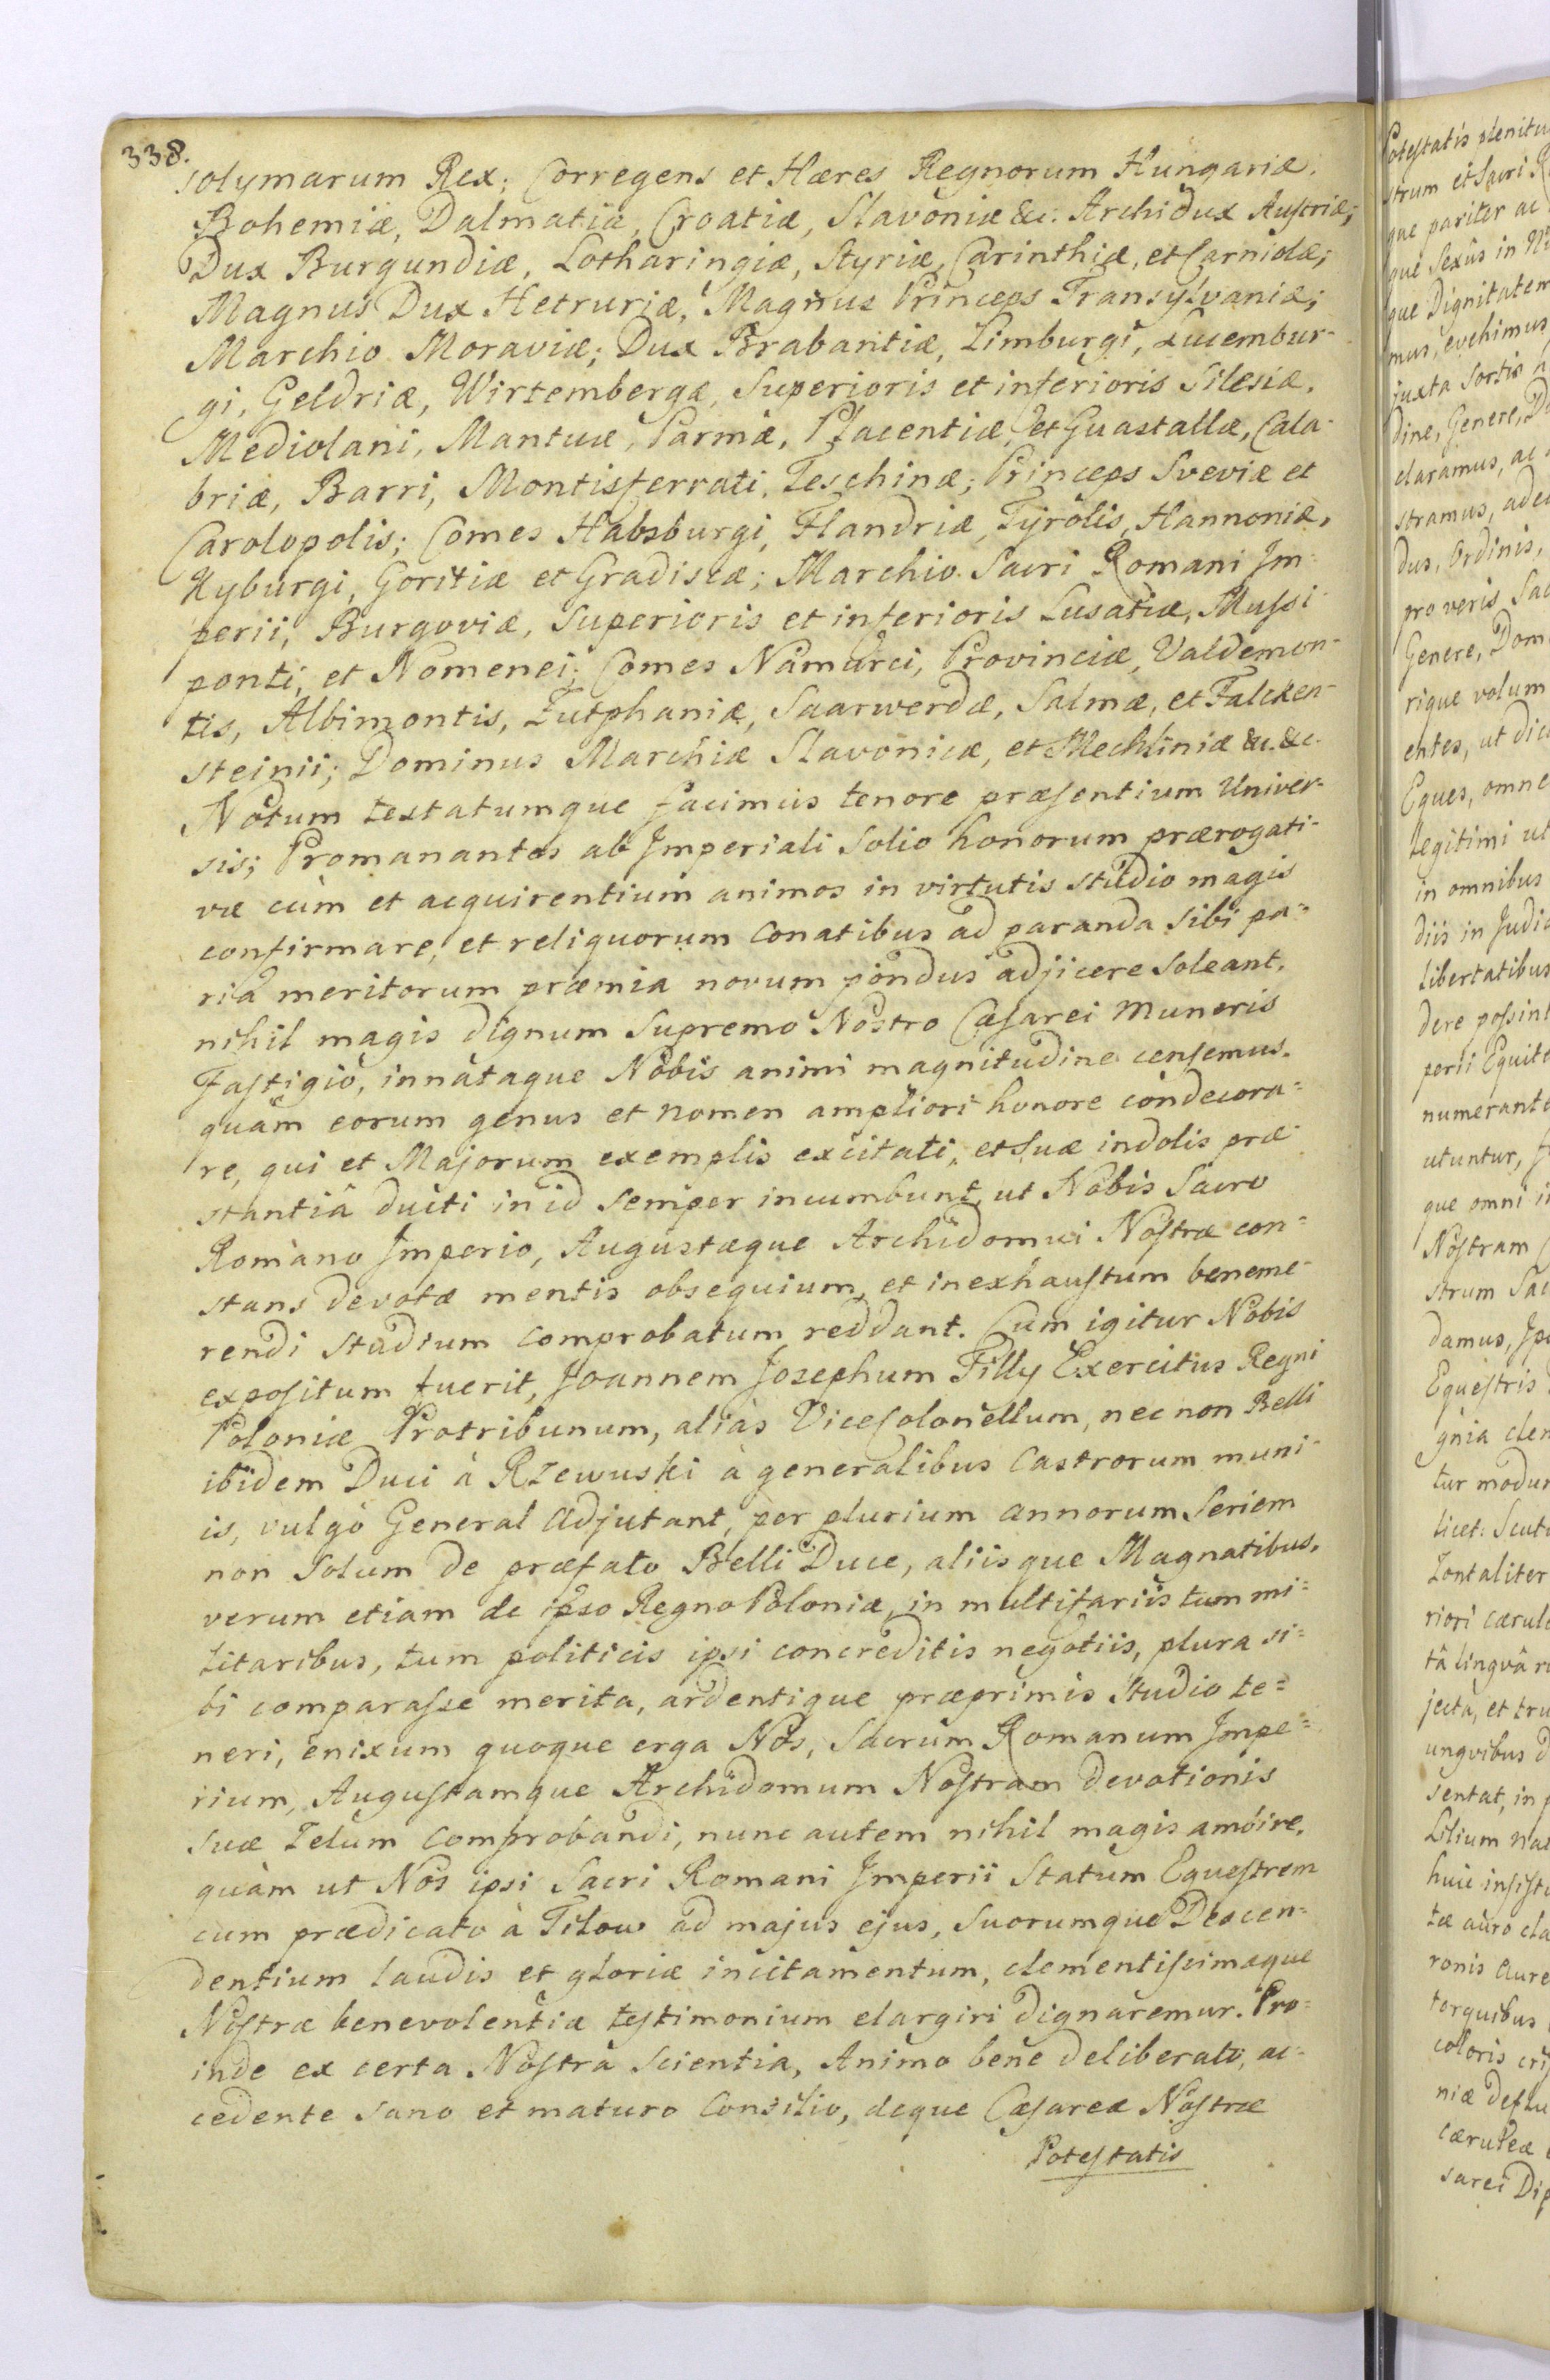 338.
solymarum Rex; Corregens et Hæres Regnorum Hungariæ,
Bohemiæ, Dalmatiæ, Croatiæ, Slavoniæ &c. Archidux Austriæ;
Dux Burgundiæ, Lotharingiæ, Styriæ, Carinthiæ, et Carniolæ;
Magnus Dux Hetruriæ, Magnus Princeps Transylvaniæ;
Marchio Moraviæ; Dux Brabantiæ, Limburgi, Lucembur-
gi, Geldriæ, Wirtembergæ, Superioris et inferioris Silesiæ,
Mediolani, Mantuæ, Parmæ, Placentiæ, et Guastallæ, Cala-
briæ, Barri, Montisferrati, Teschinæ; Princeps Sveviæ et
Carolopolis; Comes Habsburgi, Flandriæ, Tyrolis, Hannoniæ,
Kyburgi, Goritiæ et Gradiscæ; Marchio Sacri Romani Im-
perii, Burgoviæ, Superioris et inferioris Lusatiæ, Mussi-
ponti, et Nomenei; Comes Namurci, Provinciæ, Valdemon-
tis, Albimontis, Zutphaniæ, Saarwerdæ, Salmæ, et Falcken-
steinii; Dominus Marchiæ Slavonicæ, et Mechliniæ &c. &c.
Notum testatumque facimus tenore præsentium Univer-
sis; Promanantes ab Imperiali Solio honorum prærogati-
væ cùm et acquirentium animos in virtutis studio magis
confirmare, et reliquorum conatibus ad paranda sibi pa=
ria meritorum præmia novum pondus adjicere soleant,
nihil magis dignum Supremo Nostro Cæsarei Muneris
Fastigiò, innatâque Nobis animi magnitudine censemus,
quàm eorum genus et nomen ampliori honore condecora=
re, qui et Majorum exemplis excitati, et Suæ indolis præ-
stantiâ ducti in id semper incumbunt, ut Nobis Sacro
Romano Imperio, Augustæque Archidomui Nostræ con=
stans devotæ mentis obsequium, et inexhaustum beneme-
rendi studium comprobatum reddant. Cum igitur Nobis
expositum fuerit, Joannem Josephum Tilly Exercitus Regni
Poloniæ Protribunum, aliàs Vicecolonellum, nec non Belli
ibidem Duci à Rzewuski à generalibus Castrorum muni-
is, vulgò General Adjutant, per plurium annorum Seriem
non solum de præfato Belli Duce, aliisque Magnatibus,
verum etiam de ipso Regno Poloniæ, in multifariis tum mi=
litaribus, tum politicis ipsi concreditis negotiis, plura si=
bi comparasse merita, ardentique præprimis studio te=
neri, enixum quoque erga Nos, Sacrum Romanum Impe=
rium, Augustamque Archidomum Nostram devotionis
suæ Zelum comprobandi, nunc autem nihil magis ambire,
quàm ut Nos ipsi Sacri Romani Imperii Statum Equestrem
cum prædicato à Tilow ad majus ejus, suorumque Descen=
dentium laudis et gloriæ incitamentum, clementissimæque
Nostræ benevolentiæ testimonium elargiri dignaremur. Pro=
inde ex certa Nostrâ scientia, Animo bene deliberato, ac-
cedente sano et maturo Consilio, deque Cæsareæ Nostræ
Potestatis
Potestatis plenitu
strum et Sacri R
que pariter ac
que Sexûs in
que Dignitatem
mus, evehimus
juxta Sortis
dine, Genere, D
claramus, ac
stramus, adeo
dus, Ordinis,
pro veris Sac
Genere, Dom
rique volum
entes, ut dic
Eques, omne
Legitimi ut
in omnibus
diis in Judic
Libertatibus
dere possint
perii Equite
numerant
utuntur, f
que omni i
Nostram
strum Sac
damus,
Equestris
gnia clen
tur modum
licet: Scut
Zontaliter
riori cærule
tâ lingvâ r
jecta, et tru
ungvibus d
sentat, in
Lilium na
huic insist
tæ auro cla
ronis aure
torquibus
coloris cri
niæ deflu
cæruleæ
sarei Dip